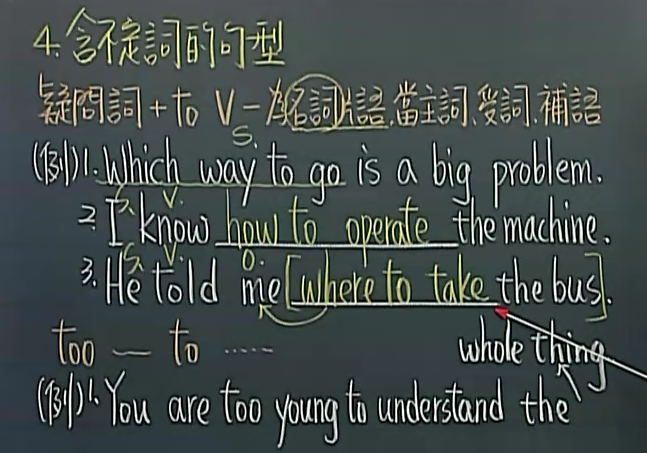 4. 含不定詞的句型
疑問詞 + to V – 為名詞片語, 當主詞、受詞、補語
S.
(例)1. Which way to go is a big problem.
S. V.
2. I know how to operate the machine.
S. V. O.
3. He told me [where to take the bus].
too — to ......
(例)1. You are too young to understand the whole thing